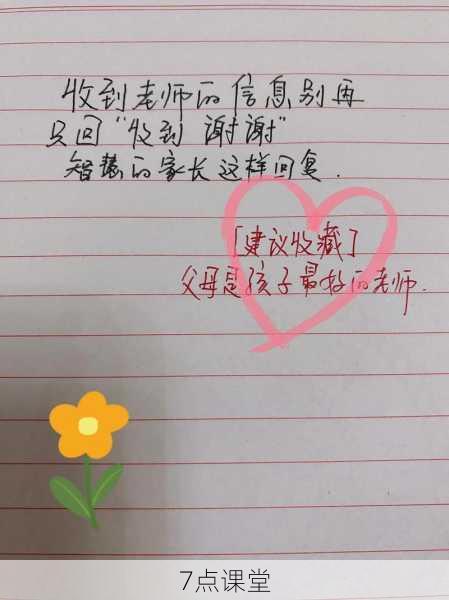 收到老师的信息别再
只回“收到 谢谢”
智慧的家长这样回复.
「建议收藏」
父母是孩子最好的老师.
7点课堂